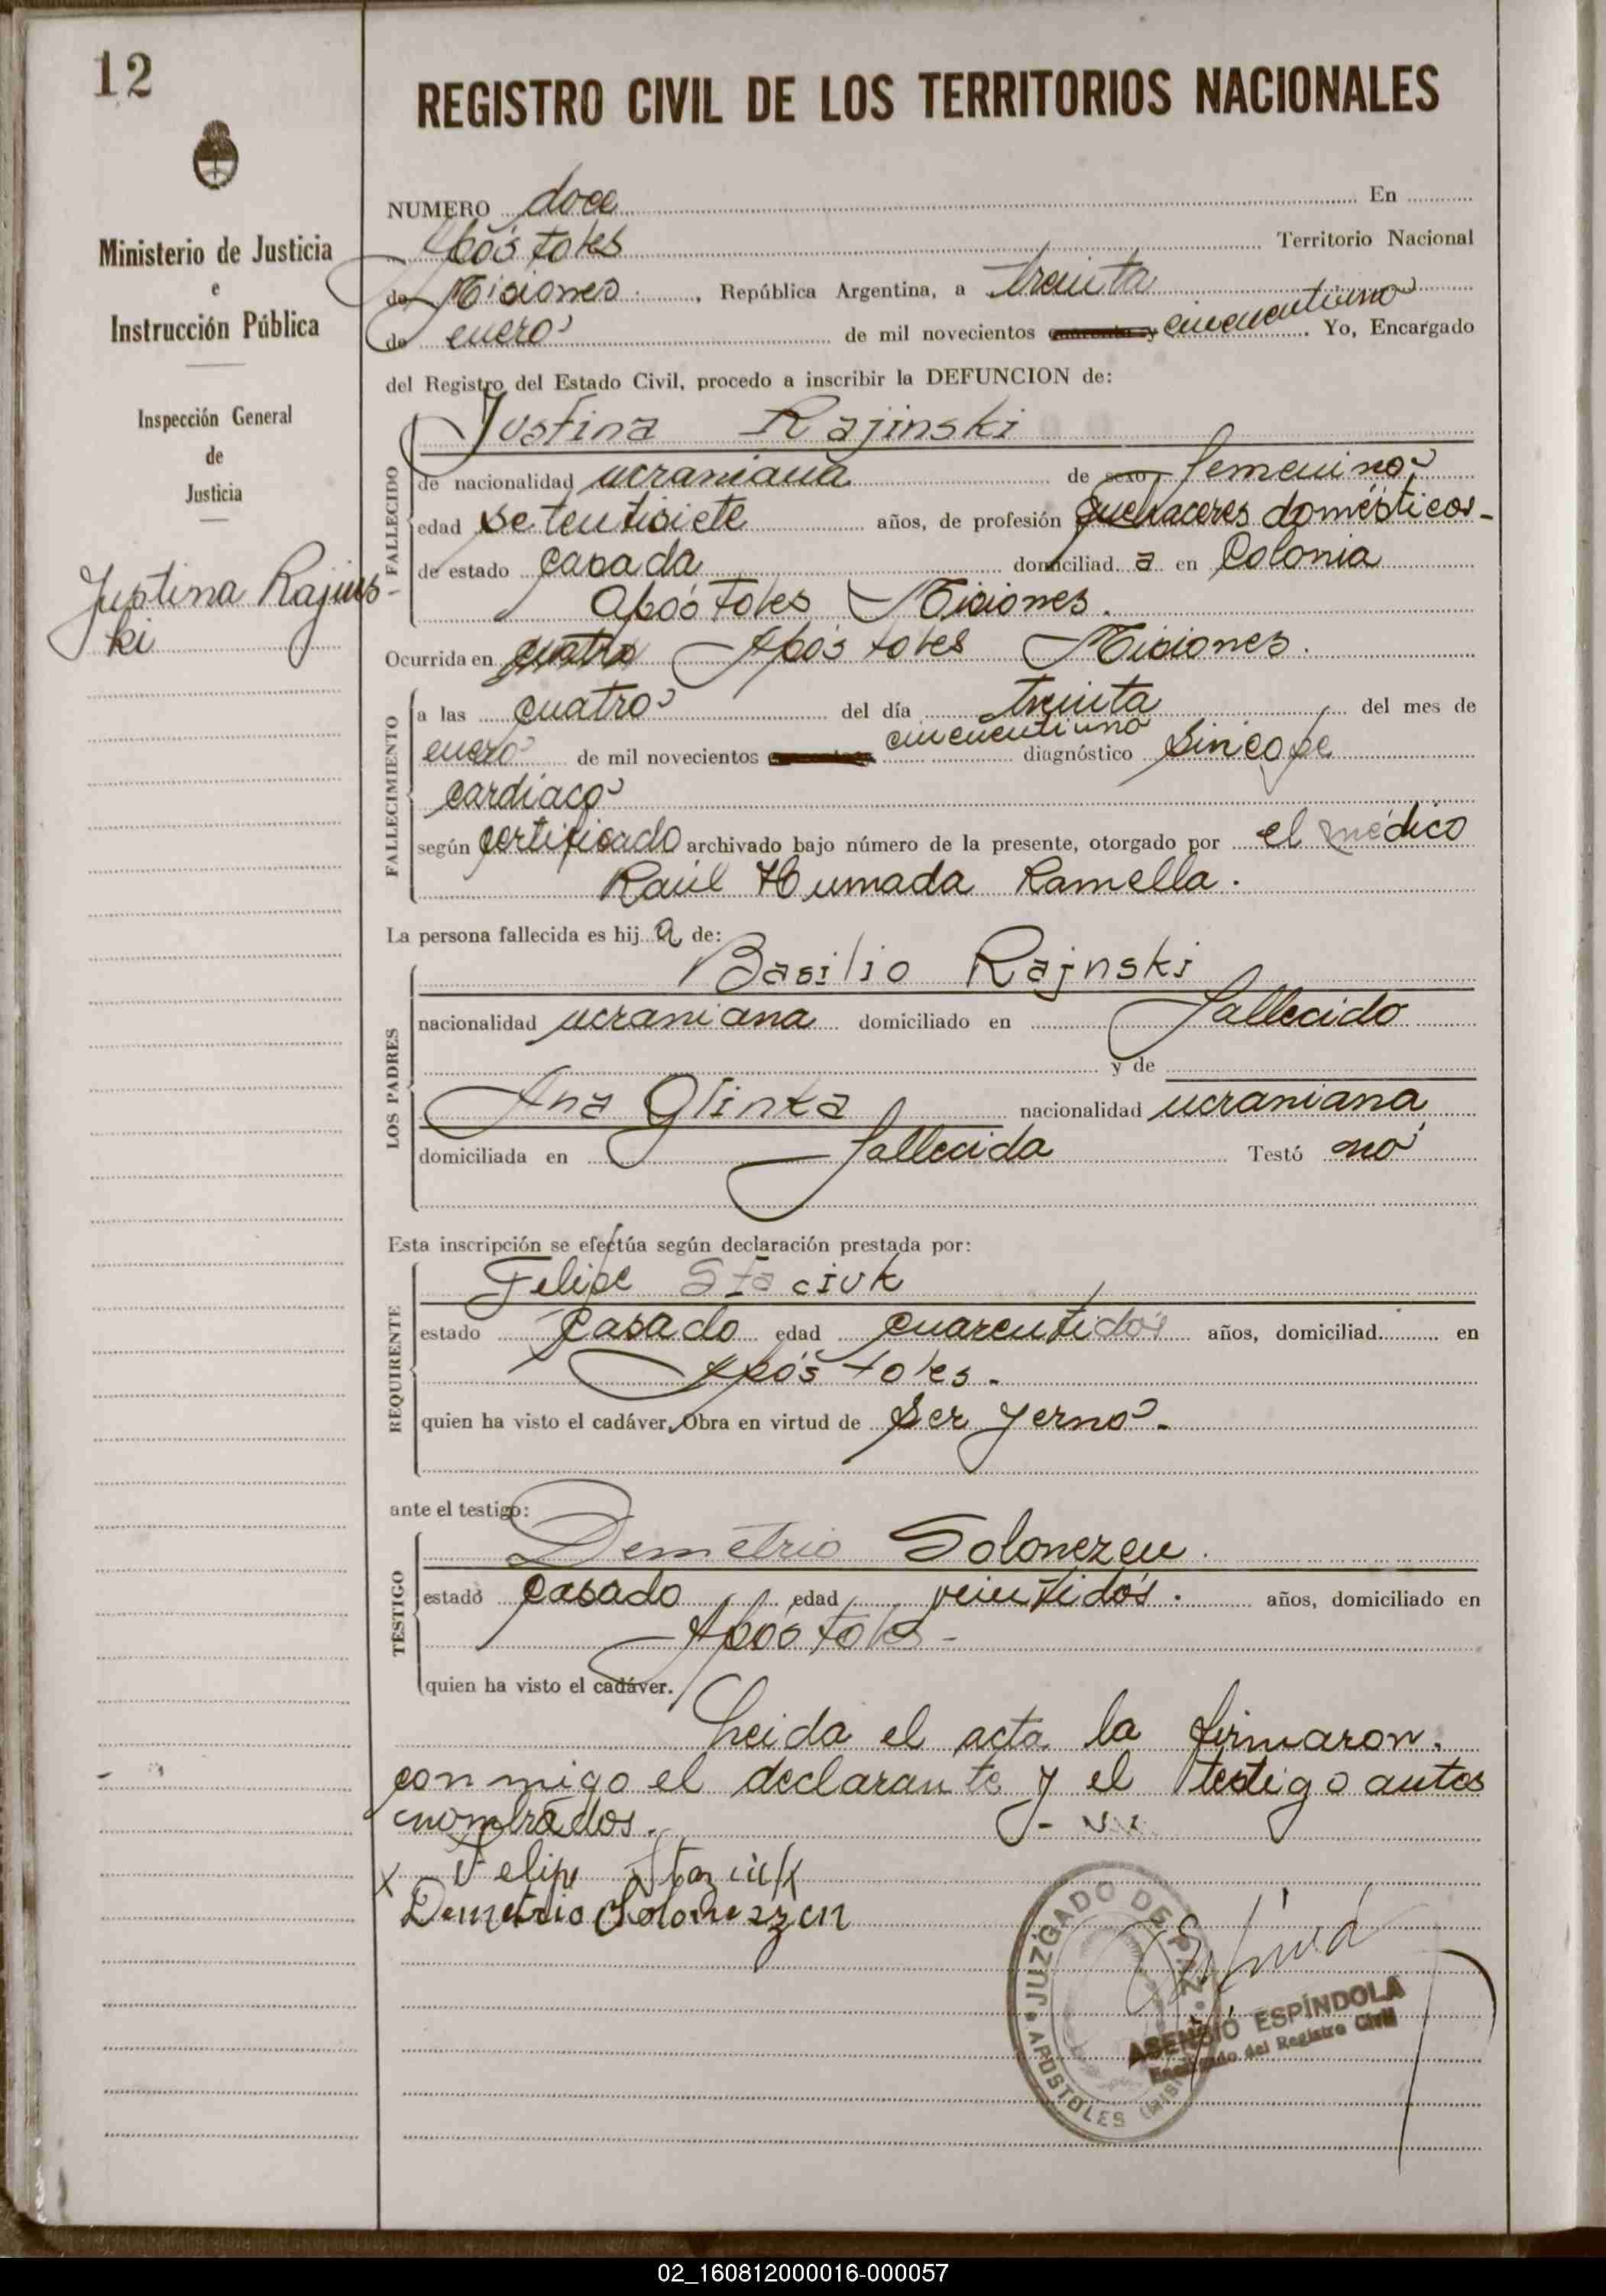 12
Ministerio de Justicia
e
Instrucción Pública
Inspección General
de
Justicia
Justina Rajins-
ki
REGISTRO CIVIL DE LOS TERRITORIOS NACIONALES
NUMERO doce En
Apóstoles Territorio Nacional
de Misiones, República Argentina, a treinta
de enero de mil novecientos cincuentiuno Yo, Encargado
del Registro del Estado Civil, procedo a inscribir la DEFUNCION de:
FALLECIDO
Justina Rajinski
de nacionalidad ucraniana de sexo femenino
edad setentisiete años, de profesión quehaceres domésticos-
de estado casada domiciliad a en Colonia
Apóstoles Misiones.
Ocurrida en cuatro Apóstoles Misiones.
FALLECIMIENTO
a las cuatro del día treinta del mes de
enero de mil novecientos cincuentiuno diagnóstico sincope
cardíaco
según certificado archivado bajo número de la presente, otorgado por el médico
Raúl Humada Ramella.
La persona fallecida es hij a de:
LOS PADRES
Basilio Rajnski
nacionalidad ucraniana domiciliado en fallecido
y de
Ana Glinka nacionalidad ucraniana
domiciliada en fallecida Testó no
Esta inscripción se efectúa según declaración prestada por:
REQUIRENTE
Felipe Staciuk
estado casado edad cuarentidós años, domiciliad en
Apóstoles.
quien ha visto el cadáver. Obra en virtud de ser yerno-
ante el testigo:
TESTIGO
Demetrio Solonezen
estado casado edad veintidós. años, domiciliado en
Apóstoles-
quien ha visto el cadáver.
Leida el acta la firmaron.
conmigo el declarante y el testigo antes
nombrados.
x Felipe Staziuk
Demetrio Solonezzen
JUZGADO DE PAZ
APOSTOLES
ASENSIO ESPÍNDOLA
Encargado del Registro Civil
02_160812000016-000057